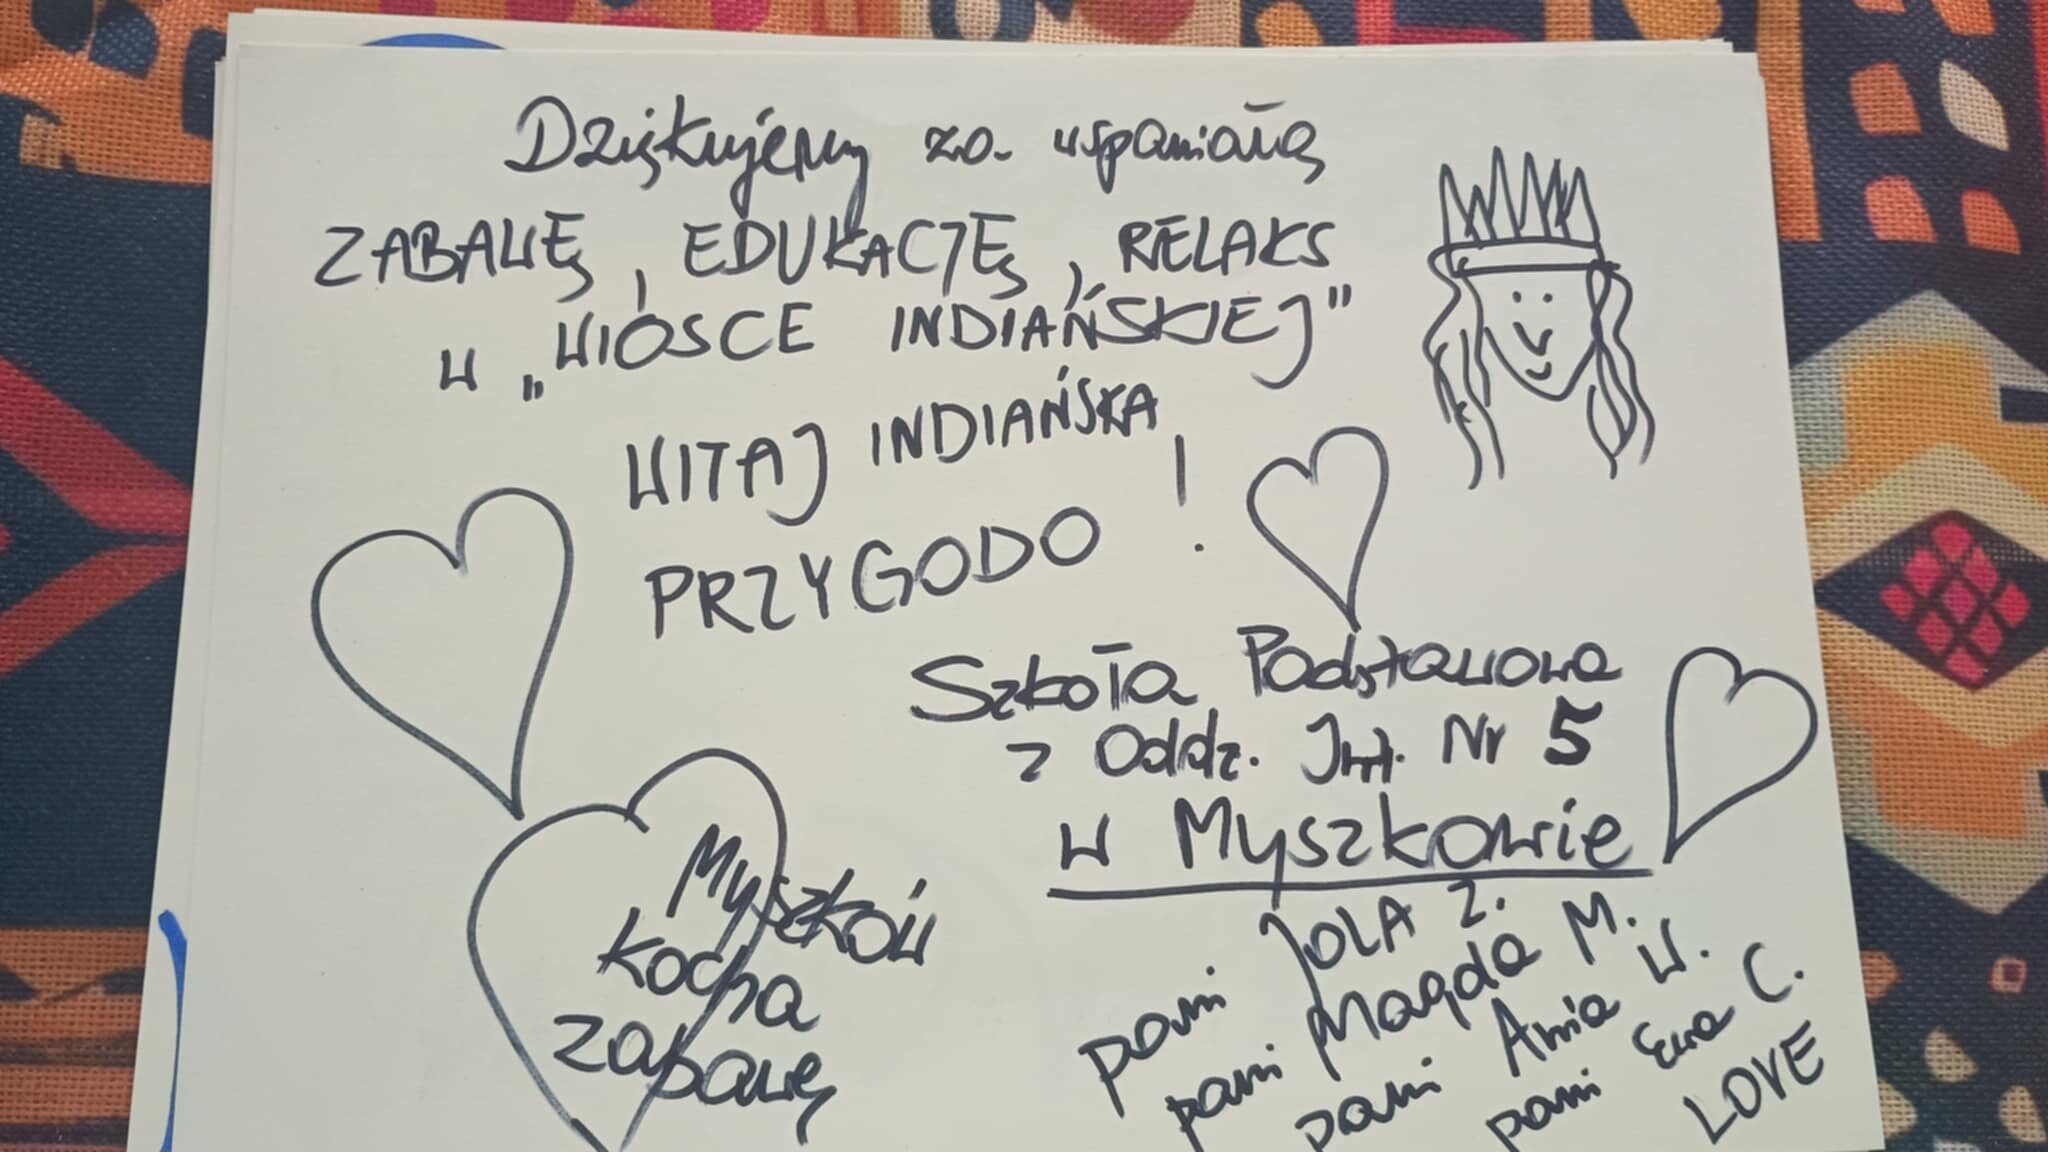 Dziękujemy za wspaniałą
ZABAWĘ, EDUKACJĘ, RELAKS
w „WIOSCE INDIAŃSKIEJ"
WITAJ INDIAŃSKA
PRZYGODO!
Szkoła Podstawowa
z Oddz. Int. Nr 5
w Myszkowie
pani JOLA Z.
pani Magda M.
pani Ania W.
pani Ewa C.
LOVE
Myszków
kocha
zabawę